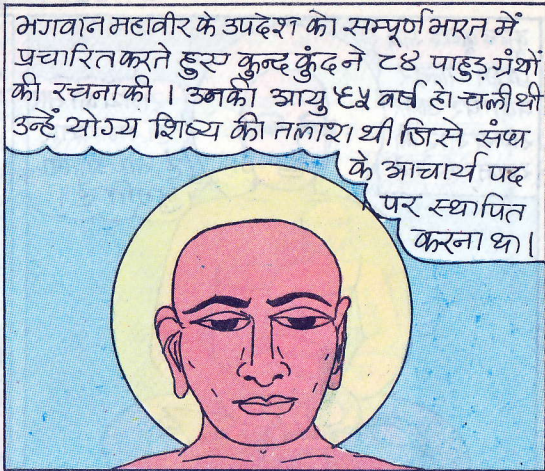 भगवान महावीर के उपदेश को सम्पूर्ण भारत में
प्रचारित करते हुए कुन्द कुंद ने ८४ पाहुड़ ग्रंथों
की रचना की । उनकी आयु ६५ वर्ष हो चली थी
उन्हें योग्य शिष्य की तलाश थी जिसे संघ
के आचार्य पद
पर स्थापित
करना था ।